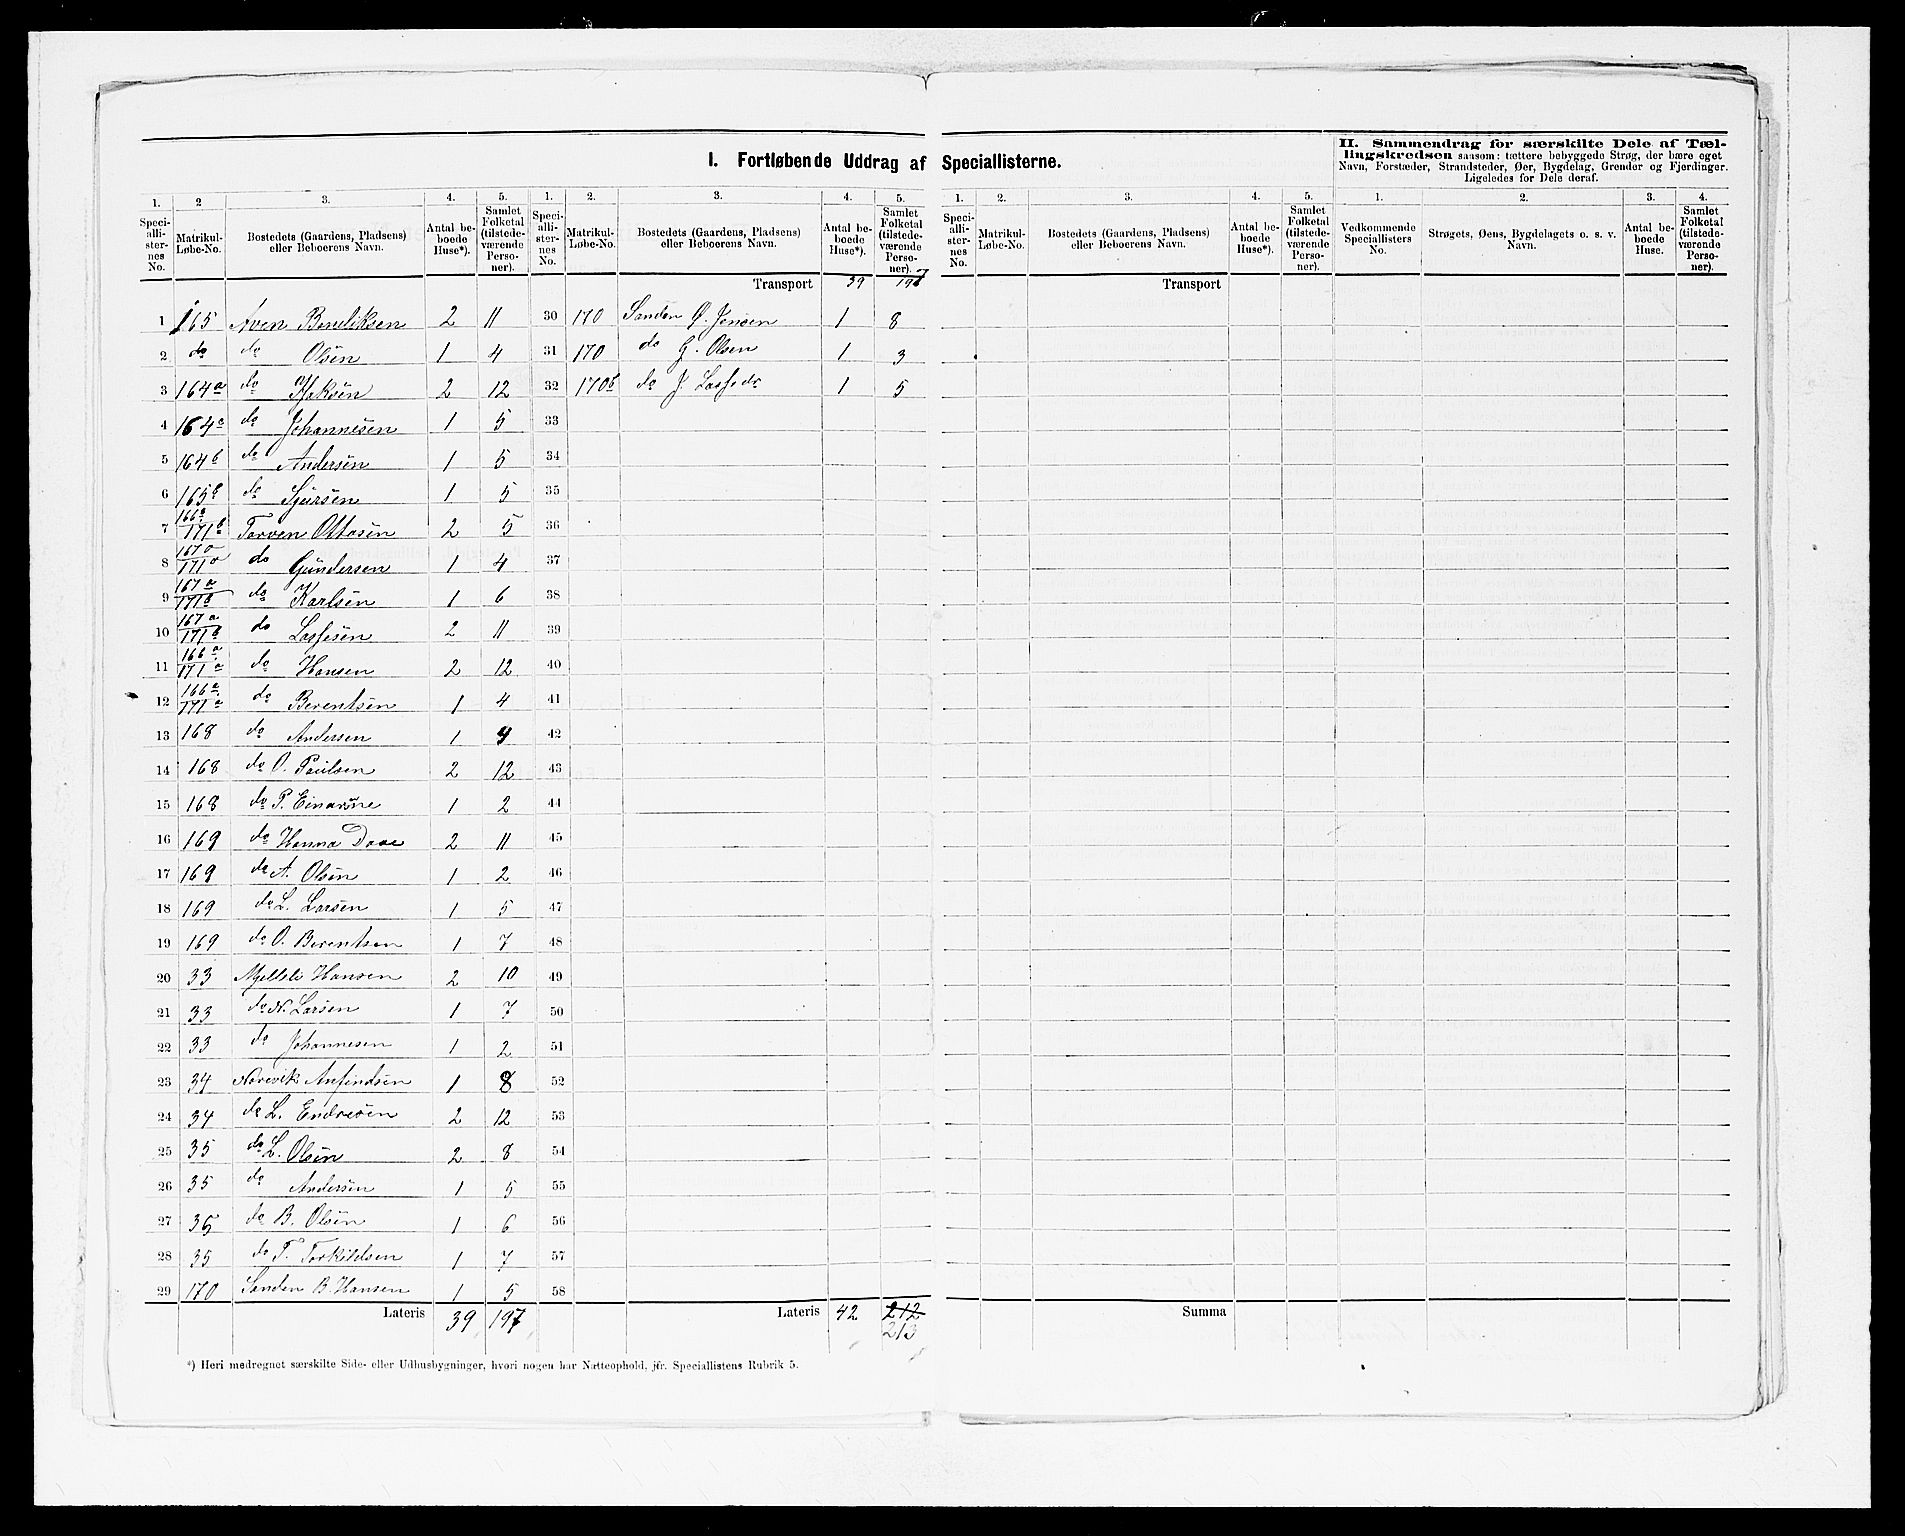 I. Fortløbende Uddrag af Speciallisterne.
II. Sammendrag for særskilte Dele af Tællingskredsen saasom: tættere bebyggede Strøg, der bære eget
Navn, Forstæder, Strandsteder, Øer, Bygdelag, Grender og Fjerdinger.
Ligeledes for Dele deraf.
1. 2 3. 4. 5. 1. 2. 3. 4. 5. 1. 2. 3. 4. 5. 1. 2. 3. 4.
Speciallisternes No. Matrikul-Løbe-No. Bostedets (Gaardens, Pladsens) eller Beboerens Navn. Antal beboede Huse*). Samlet Folketal (tilstedeværende Personer).
Speciallisternes No. Matrikul-Løbe-No. Bostedets (Gaardens, Pladsens) eller Beboerens Navn. Antal beboede Huse*). Samlet Folketal (tilstedeværende Personer).
Speciallisternes No. Matrikul-Løbe-No. Bostedets (Gaardens, Pladsens) eller Beboerens Navn. Antal beboede Huse*). Samlet Folketal (tilstedeværende Personer).
Vedkommende Speciallisters No. Strøgets, Øens, Bygdelagets o. s. v. Navn. Antal beboede Huse. Samlet Folketal (tilstedeværende Personer).
Transport 39 197 Transport
1 165 Aven Bendiksen 2 11 30 170 Sanden Ø. Jensen 1 8
2 do do Olsen 1 4 31 170 do G. Olsen 1 3
3 164a do 2 12 32 170b do J. Lassedr 1 5
4 164c do Johannesen 1 5 33
5 164b do Andersen 1 5 34
6 165b do Sjursen 1 5 35
7 166a/171b Torven Ottosen 2 5 36
8 167a/171a do Gundersen 1 4 37
9 167a/171b do Karlsen 1 6 38
10 167a/171b do Lassesen 2 11 39
11 166a/171a do Hansen 2 12 40
12 166a/171a do Berentsen 1 4 41
13 168 do Andersen 1 4 42
14 168 do O. Paulsen 2 12 43
15 168 do P. Einarsne 1 2 44
16 169 do Hanna Daae 2 11 45
17 169 do A. Olsen 1 2 46
18 169 do L. Larsen 1 5 47
19 169 do O. Berentsen 1 7 48
20 33 Mjelleli Hansen 2 10 49
21 33 do N. Larsen 1 7 50
22 33 do Johannesen 1 2 51
23 34 Norevik Anfindsen 1 8 52
24 34 do L. Endresen 2 12 53
25 35 do L. Olsen 2 8 54
26 35 do Andersen 1 5 55
27 35 do B. Olsen 1 6 56
28 35 do T. Torkildsen 1 7 57
29 170 Sanden B. Hansen 1 5 58
Lateris 39 197 Lateris 42 212 Summa
213
*) Heri medregnet særskilte Side- eller Udhusbygninger, hvori nogen har Natteophold, jfr. Speciallistens Rubrik 5.